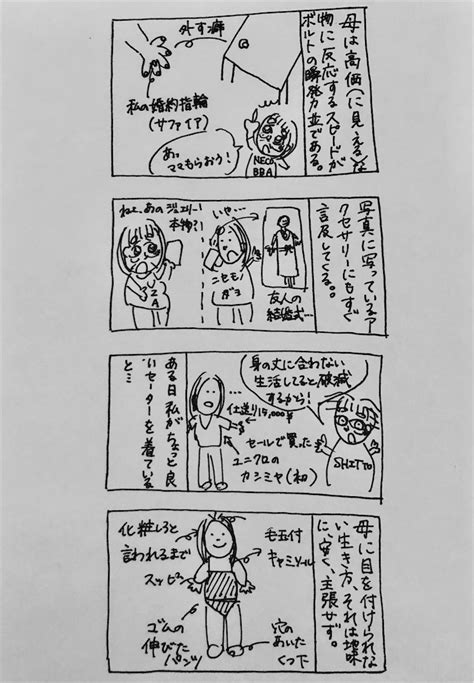 母は高価(に見える)な
物に反応するスピードが
ボルトの瞬発力並である。
外す癖
私の婚約指輪
(サファイア)
あっ
ママもらおう!
NECO
BBA
写真に写っているア
クセサリーにもすぐ
言及してくる。
ねぇ、あのジュエリー
本物?!
いや…
ニセモノ
ダヨ
友人の
結婚式…
ある日私がちょっと良
いセーターを着ている
と…
身の丈に合わない
生活してると破滅
するから!
仕送り15,000¥
セールで買った
ユニクロの
カシミヤ(初)
SHITTO
母に目を付けられな
い生き方、それは地味
に、安く、主張せず。
化粧しろと
言われるまで
スッピン
毛玉付
キャミソール
ゴムの
伸びた
パンツ
穴の
あいた
くつ下